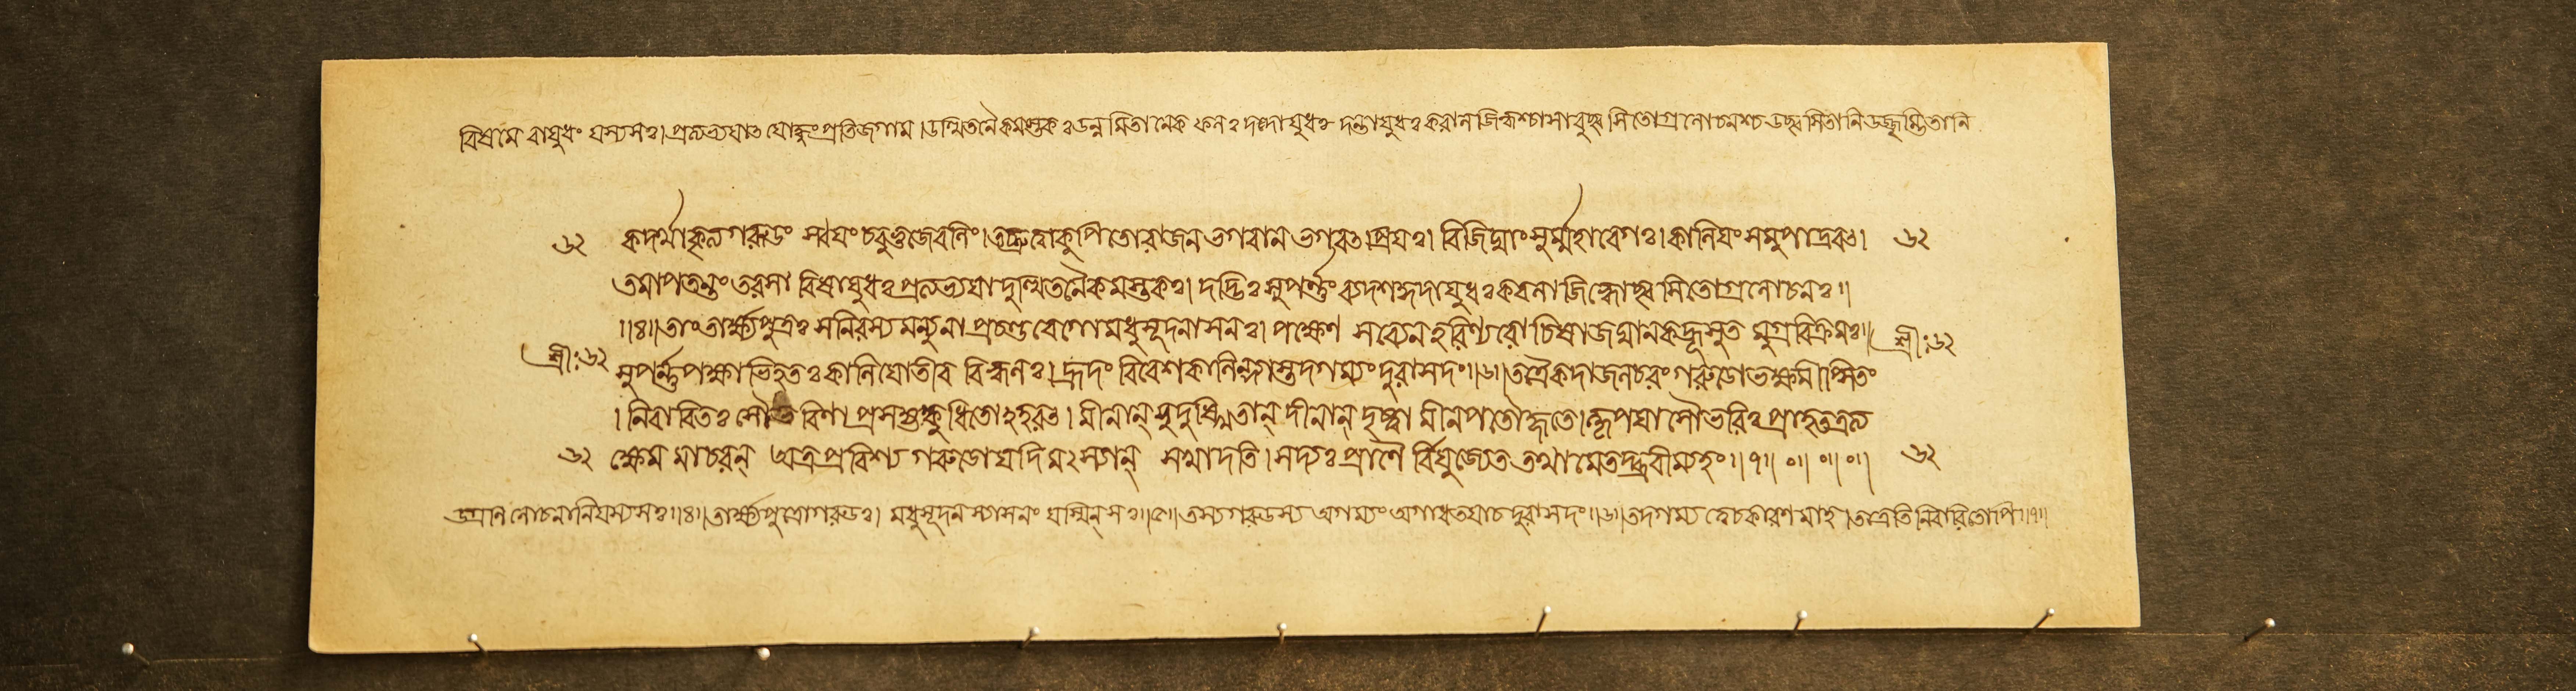 বিষমে বায়ুধং যস্য সঃ। প্রত্যভ্যযাৎ যোদ্ধুং প্রতিজগাম। উত্থিতনৈকমস্তকঃ উন্নমিতানেক ফনঃ দদ্দাযুধঃ দন্তাযুধঃ করাল জিহ্বশ্চাসাবুচ্ছ্বসিতোগ্রলোচনশ্চ উচ্ছ্বসিতানি উজ্জৃম্ভিতানি
৬২ কদর্থীকৃত্য গরুডং স্বযং তং বুভুজে বলিং। তচ্ছ্রুত্বা কুপিতো রাজন ভগবান ভগবৎপ্রিযঃ। বিজিঘাংসুর্ম্মহাবেগঃ কালিযং সমুপাদ্রবৎ। ৬২
তমাপতন্তং তরসা বিষাযুধঃ প্রত্যভ্যযাদুত্থিতনৈকমস্তকঃ। দদ্ভিঃ সুপর্ণ্ণং ব্যদশদ্দদাযুধঃ করালজিহ্বোচ্ছ্বসিতোগ্রলোচনঃ॥
॥৪॥ তং তার্ক্ষ্যপুত্রঃ সনিরস্য মন্যুনা প্রচণ্ডবেগো মধুসূদনাসনঃ। পক্ষেণ সব্যেন হরিণ্যরোচিষা জঘান কদ্রূসুত মুগ্রবিক্রমঃ॥ শ্রীঃ ৬২
শ্রীঃ ৬২ সুপর্ণ্ণপক্ষাভিহতঃ কালিযোতীব বিহ্বলঃ। হ্রদং বিবেশ কালিন্দ্যাস্তদগম্যং দুরাসদং॥৬॥ তত্রৈকদা জলচরং গরুডো ভক্ষমীপ্সিতং
। নিবারিতঃ সৌভরিণা প্রসহ্য ক্ষুধিতোহহরৎ। মীনান্ সুদুঃখিতান্ দীনান্ দৃষ্ট্বা মীনপতৌ হৃতে। কৃপযা সৌভরিঃ প্রাহ তত্রত্য
৬২ ক্ষেম মাচরন্ অত্র প্রবিশ্য গরুডো যদি মৎস্যান্ সখাদতি। সদ্যঃ প্রাণৈ র্বিযুজ্যেত সত্যমেতদ্ব্রবীম্যহং॥৭॥ ০॥ ০॥ ০॥ ৬২
উগ্রানি লোচনানি যস্য সঃ॥৪॥ তার্ক্ষ্যপুত্রো গরুডঃ। মধুসূদনস্যাসনং যস্মিন্ সঃ॥৫॥ তস্য গরুডস্য অগম্যং অগাধতযা চ দুরাসদং॥৬॥ তদগম্যত্বে চ কারণমাহ। তত্রেতি নিবারিতোপি॥৭॥